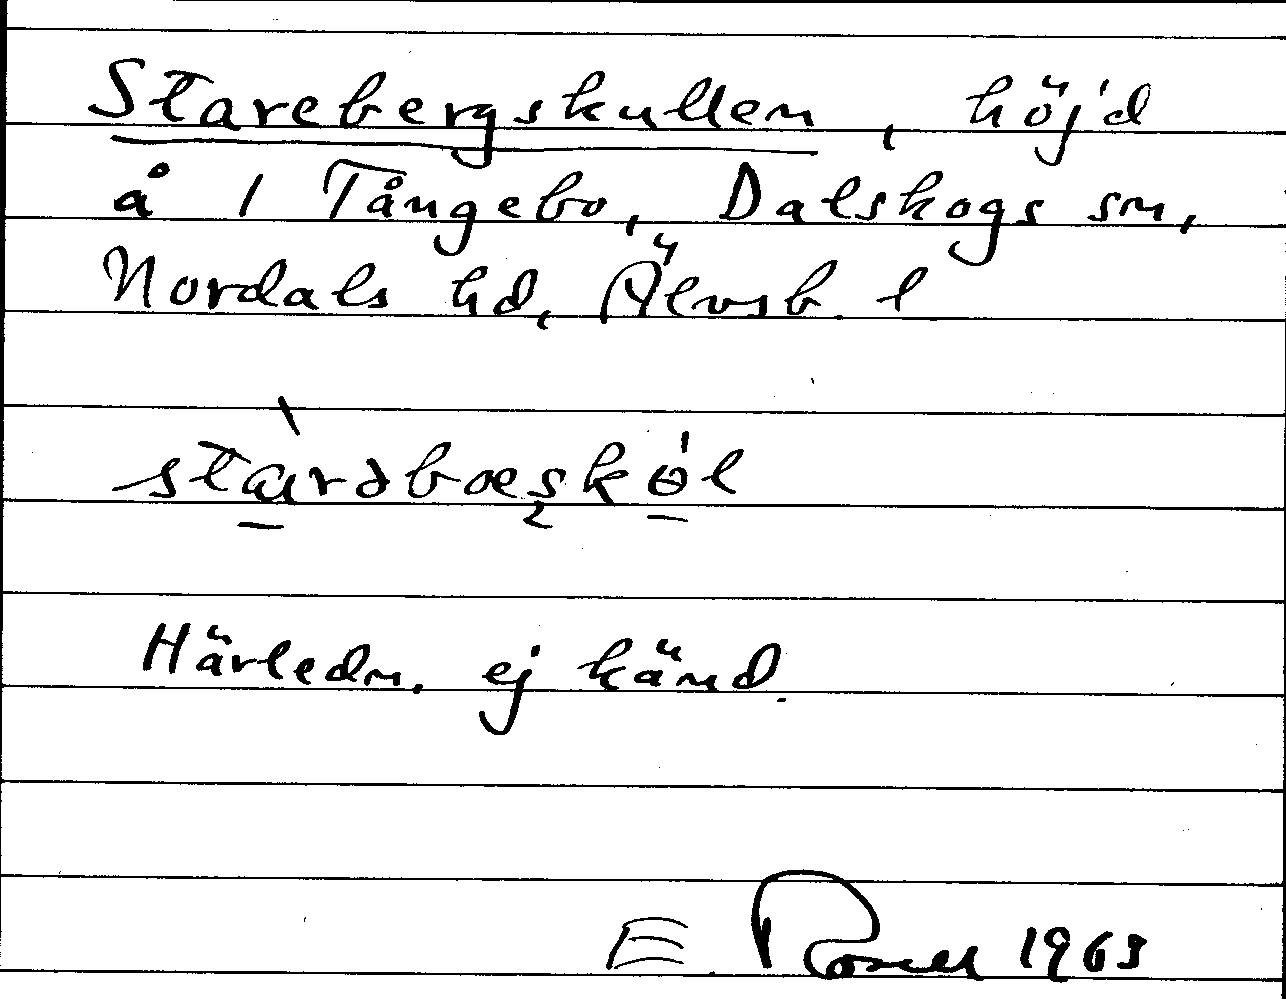 Starebergskullen, höjd
å 1 Tångebo, Dalskogs sn,
Nordals hd, Älvsb. l
Härledn. ej känd.
E. 1963